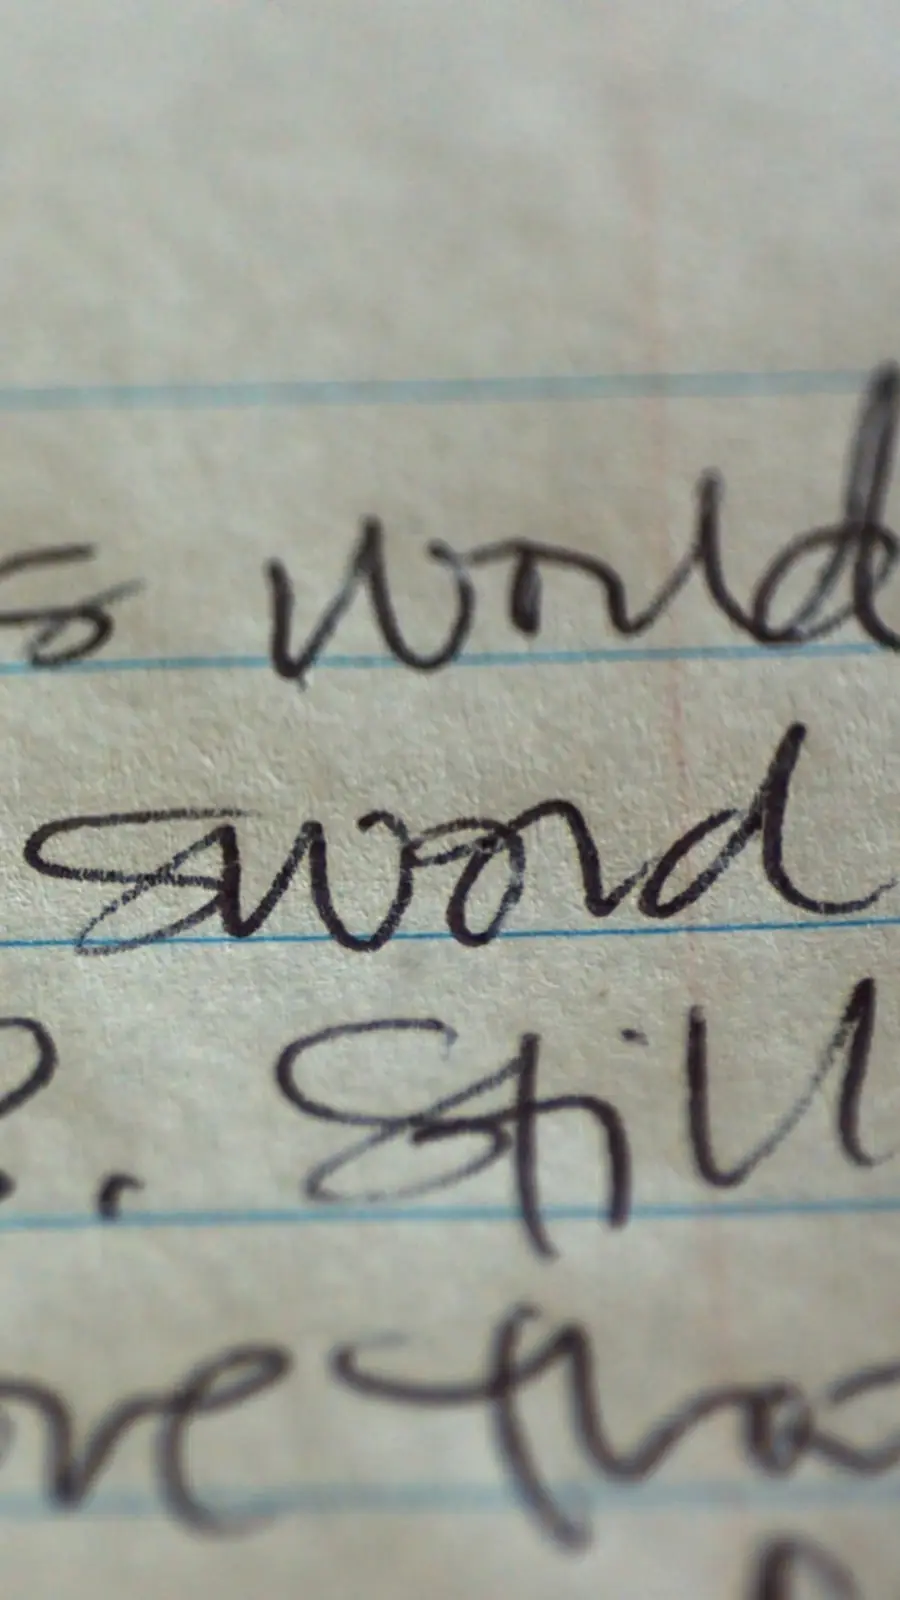 s world
sword
. Still
ore tha